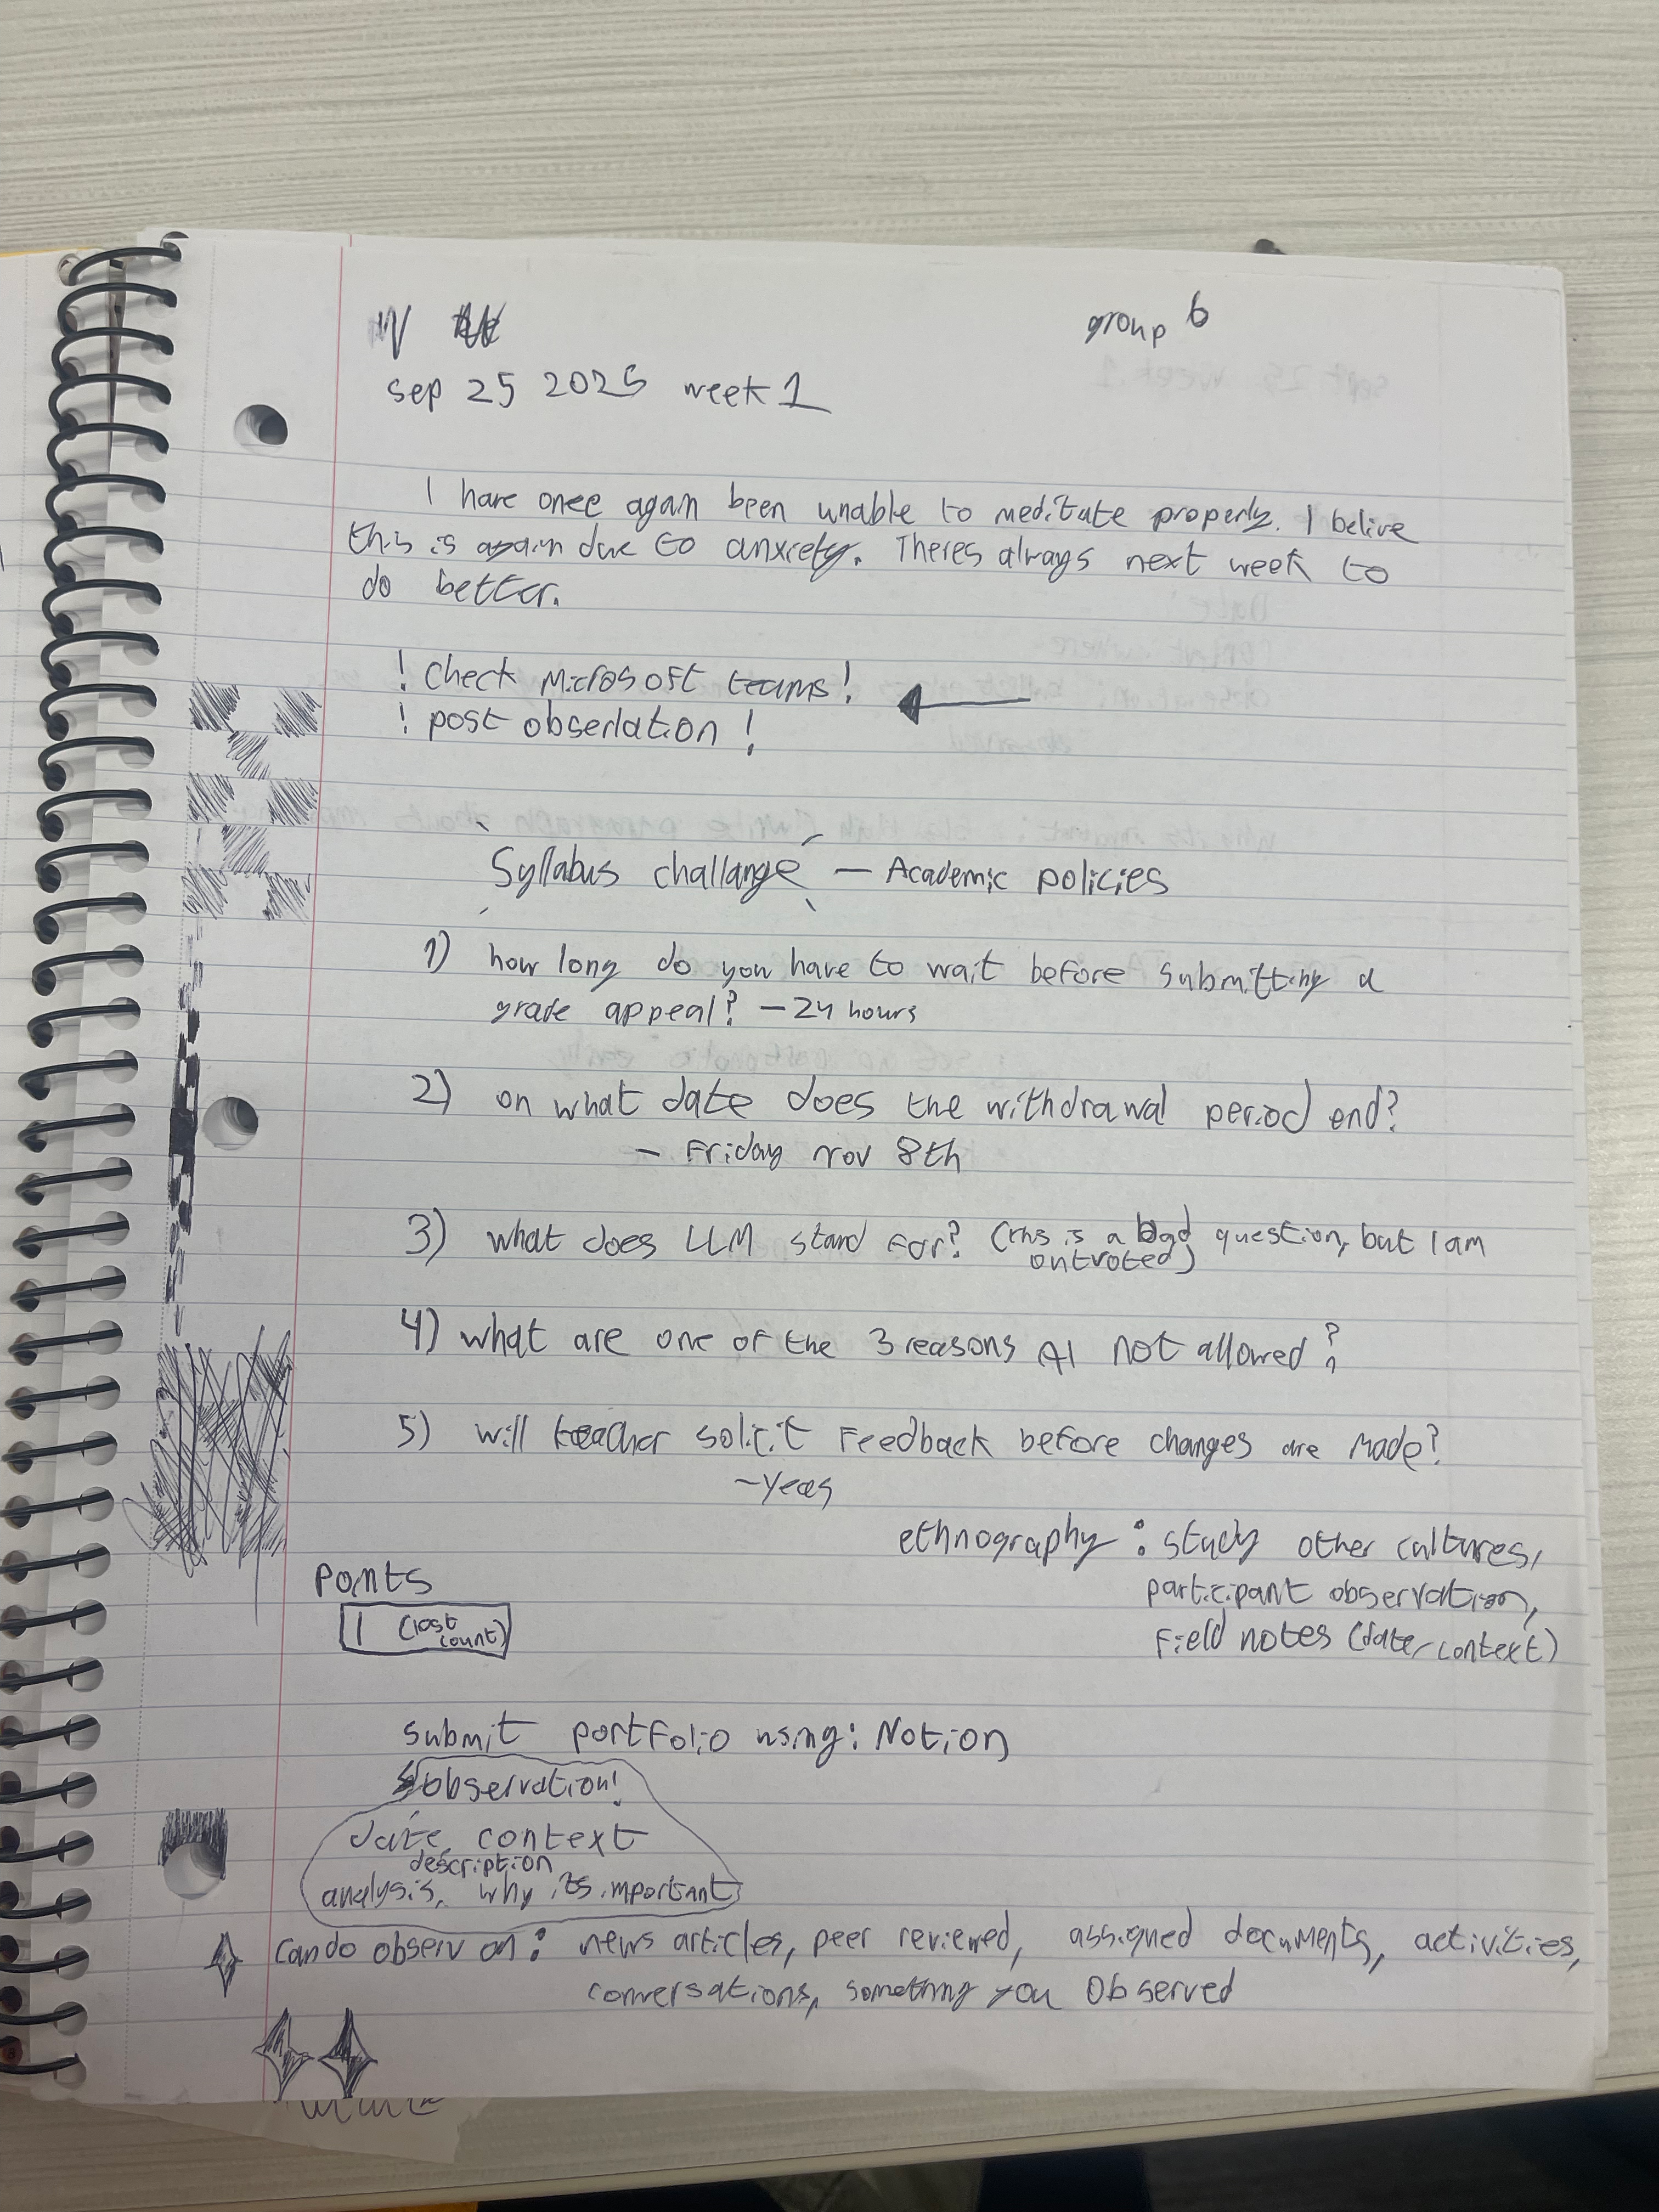 group 6
sep 25 2025 week 1
I have once again been unable to meditate properly. I belive
this is again due to anxiety. Theres always next week to
do better.
! Check Microsoft teams!
! post observation !
Syllabus challange — Academic policies
1) how long do you have to wait before submitting a
grade appeal? — 24 hours
2) on what date does the withdrawal period end?
— Friday nov 8th
3) what does LLM stand for? (this is a bad question, but I am
outvoted)
4) what are one of the 3 reasons AI not allowed?
5) will teacher solicit feedback before changes are made?
~ Yeas
ethnography : study other cultures,
participant observation,
Field notes (date, context)
Points
1 (lost
count)
submit portfolio using: Notion
observation!
date, context
description
analysis, why its important
Can do observ on: news articles, peer reviewed, assigned documents, activities,
conversations, something you Observed